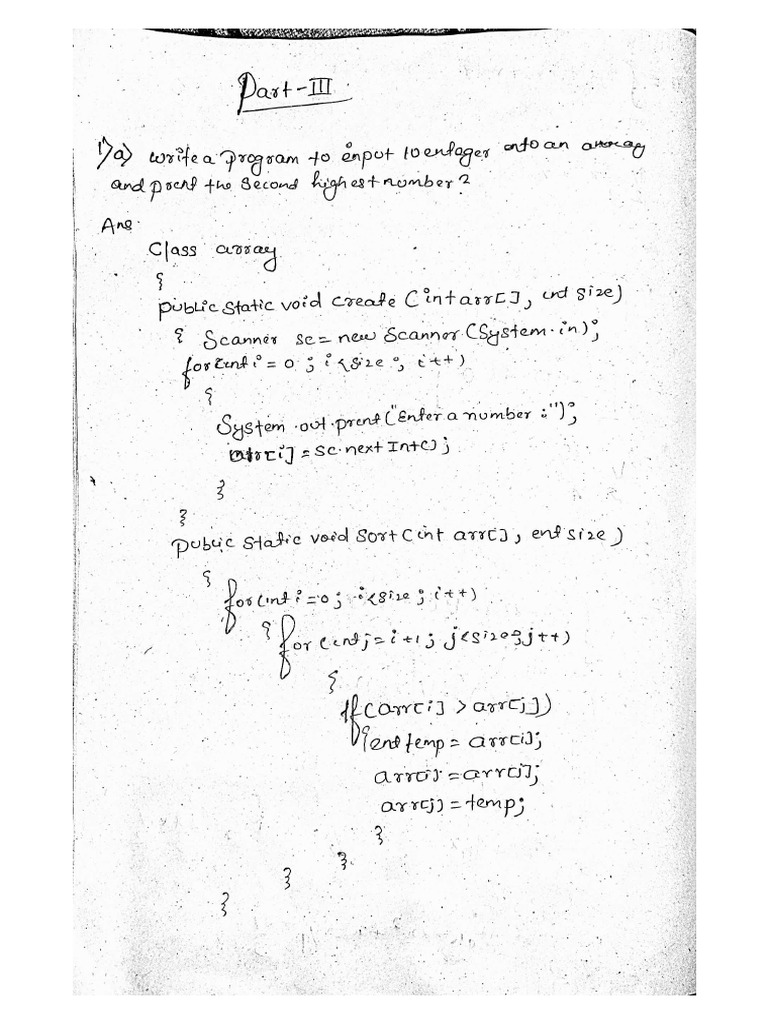 Part-III
1) a) write a program to enput 10 entager ento an array
and prent the second highest number?
Ans.
Class array
{
public static void create (int arr[], int size)
{ Scanner sc = new Scanner (System.in);
for(int i = 0 ; i < size ; i++)
{
System.out.prent("Enter a number :");
arr[i] = sc.next Int();
}
}
public static void sort (int arr[], ent size )
{
for(int i = 0 ; i < size ; i++)
{ for (int j = i+1 ; j < size ; j++)
{
if (arr[i] > arr[j])
{ ent temp = arr[i];
arr[i] = arr[j];
arr[j] = temp;
}
}
}
}